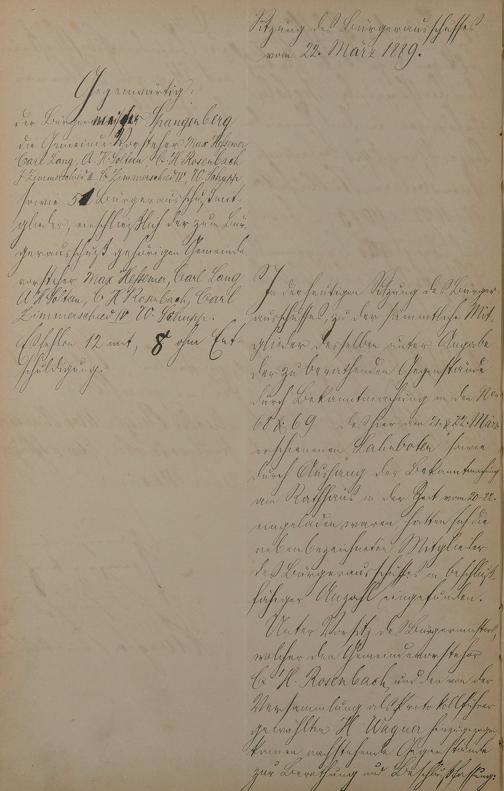 Sitzung des Bürgerausschusses
vom 22. März 1889.
Gegenwärtig:
der Bürgermeister Spangenberg
die Gemeindevorsteher Max Heßemer,
Carl Lang, A. W. Soltan, C. H. Rosenbach
J. Zimmerschied II, C. Zimmerschied IV, W. Schupp
sowie 51 Bürgerausschußmit-
glieder, einschließlich der zum Bür-
gerausschuß gehörigen Gemeinde
vorsteher Max Heßemer, Carl Lang
A W Soltan, C H Rosenbach, Carl
Zimmerschied IV W. Schupp.
Es fehlen 12 mit, 8 ohne Ent-
schuldigung.
In der heutigen Sitzung des Bürger-
ausschusses, zu der sämmtliche Mit-
glieder desselben unter Angabe
der zu berathenden Gegenstände
durch Bekanntmachung in den
68 & 69 des hier am 21. & 22. März
erschienenen "Lahnboten" sowie
durch Aushang der Bekanntmachung
am Rathhaus in der Zeit vom 20-22.
eingeladen waren, hatten sich die
nebenbezeichneten Mitglieder
des Bürgerausschusses in beschluß-
fähiger Anzahl eingefunden.
Unter Vorsitz des Bürgermeisters
welcher den Gemeindevorsteher
C. H. Rosenbach, und den von der
Versammlung als Protokollführer
gewählten H Wagner hinzugezogen
kamen nachstehende Gegenstände
zur Berathung und Beschlußfassung: